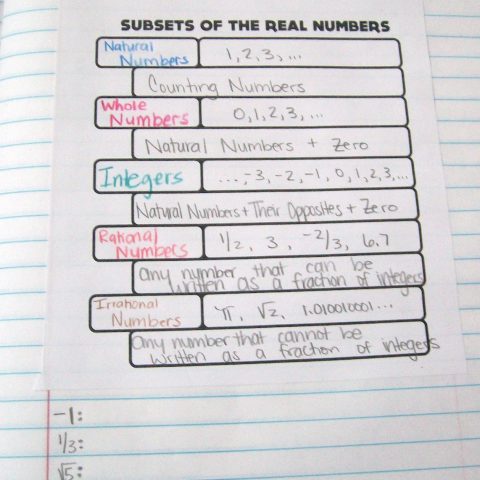 SUBSETS OF THE REAL NUMBERS
Natural Numbers
1, 2, 3, ...
Counting Numbers
Whole Numbers
0, 1, 2, 3, ...
Natural Numbers + Zero
Integers
..., -3, -2, -1, 0, 1, 2, 3, ...
Natural Numbers + Their Opposites + Zero
Rational Numbers
1/2, 3, -2/3, 6.7
any number that can be
written as a fraction of integers
Irrational Numbers
π, √2, 1.010010001...
any number that cannot be
written as a fraction of integers
-1:
1/3:
√5: